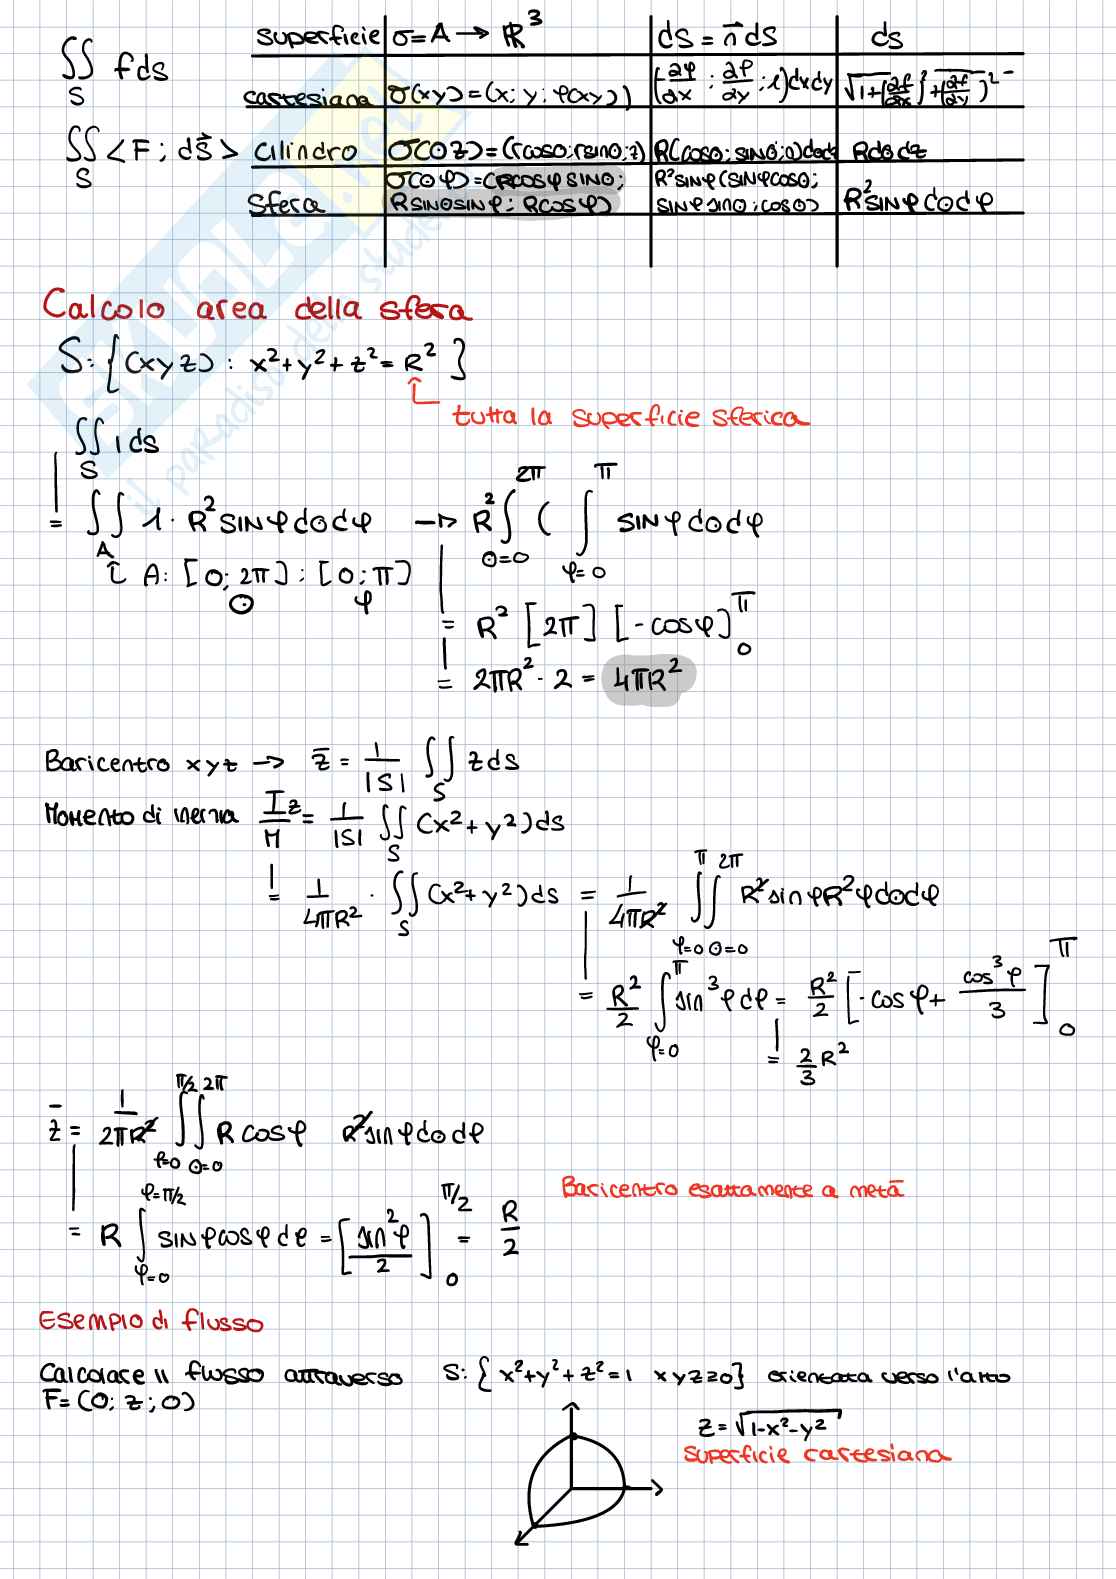 ∬_S f ds
superficie | σ = A → ℝ³ | ds = n⃗ ds | ds
cartesiana | σ(xy) = (x; y; φ(xy)) | (∂φ/∂x ; ∂f/∂y ; 1) dxdy | √(1+(∂f/∂x)²+(∂f/∂y)²)
∬_S <F; ds⃗>
cilindro | σ(Θz) = (rcosΘ; rsinΘ; z) | R(cosΘ; sinΘ; 0) dΘdz | RdΘdz
sfera | σ(Θφ) = (Rcosφ sinΘ; | R² sinφ (sinφcosΘ; | R² sinφ dΘdφ
RsinΘsinφ; Rcosφ) | sinφ sinΘ; cosΘ)
Calcolo area della sfera
S: { (xyz) : x²+y²+z² = R² }
tutta la superficie sferica
∬_S 1 ds
= ∬_A 1 · R² sinφ dΘdφ → R² ∫_{Θ=0}^{2π} ( ∫_{φ=0}^{π} sinφ dΘdφ
A: [0; 2π] ; [0; π]
Θ φ
= R² [2π] [-cosφ]_0^π
= 2πR² · 2 = 4πR²
Baricentro xyz → z̄ = 1/|S| ∬_S z ds
Momento di inerzia I_z/M = 1/|S| ∬_S (x²+y²) ds
= 1/4πR² · ∬_S (x²+y²) ds = 1/4πR² ∫_{φ=0}^{π} ∫_{Θ=0}^{2π} R² sinφ R² φ dΘdφ
= R²/2 ∫_{φ=0}^{π} sin³φ dφ = R²/2 [-cosφ + cos³φ/3]_0^π
= 2/3 R²
z̄ = 1/2πR² ∫_{φ=0}^{π/2} ∫_{Θ=0}^{2π} R cosφ R² sinφ dΘ dφ
= R ∫_{φ=0}^{φ=π/2} sinφcosφ dφ = [sin²φ/2]_0^{π/2} = R/2
Baricentro esattamente a metà
Esempio di flusso
Calcolare il flusso attraverso S: { x²+y²+z²=1 xyz≥0} orientata verso l'alto
F = (0; z; 0)
z = √(1-x²-y²)
superficie cartesiana